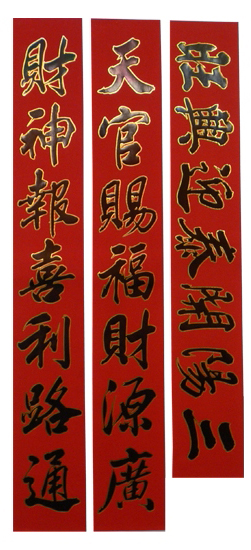 三陽開泰迎興旺
天官賜福財源廣
財神報喜利路通